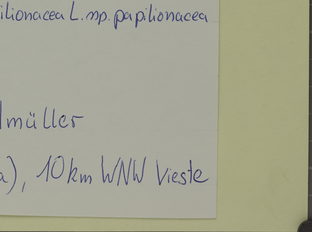 ilionacea L. ssp. papilionacea
müller
a), 10 km WNW Vieste